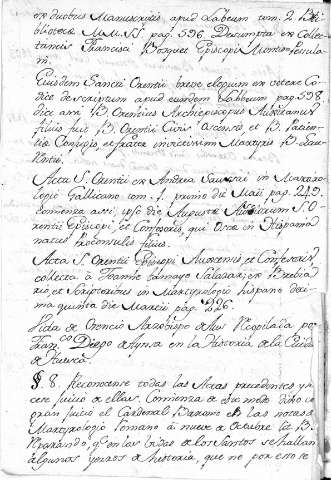 ex duobus Manuscriptis apud Labeum tom. 2 Bi-
bliotecæ M.M.SS. pag. 596. Descumpta ex Collec-
taneis Francisci Bosquet Episcopi Montem Pesula-
ni.
Eiusdem Sancti Orentii breve elogium ex vetere Co-
dice descriptum apud eundem Labbeum pag. 598.
dice assi B. Orencius Archiepiscopus Auxitanus
filius fuit B. Orentii Civis Oscensis, et B. Patien-
tiæ Coniugis, et frater invictissimi Martyris B. Lau-
rentii.
Acta S. Orentii ex Andrea Saussai in Martiro-
logio Gallicano tom. 1. primo die Maii pag. 249.
comienza assi, ipso die Augustæ S. O-
rentii Episcopi, et Confessoris, qui Oscæ in Hispania
natus proconsulis filius.
Acta S. Orentii Episcopi Auxiensis et Confessoris
collecta à Joanne tamayo Salazar, ex Brebia
rio, et Scriptoribus in Martyrologio hispano deci-
ma quinta die Martii pag. 226.
Vida de Orencio Arzobispo de Aux Recopilada por
Fran.co Diego de Aynsa en la Historia de la Ciudad
de Huesca.
§ 8. Reconocense todas las Actas precedentes, y se
juicio de ellas. Comienza de
gran juicio el Cardenal Baronio en las notas al
Martyrologio Romano à nueve de Octubre lit. B.
Reparando, q.e en las Vidas de los Santos se hallan
algunos yerros de historia, que no por esso se